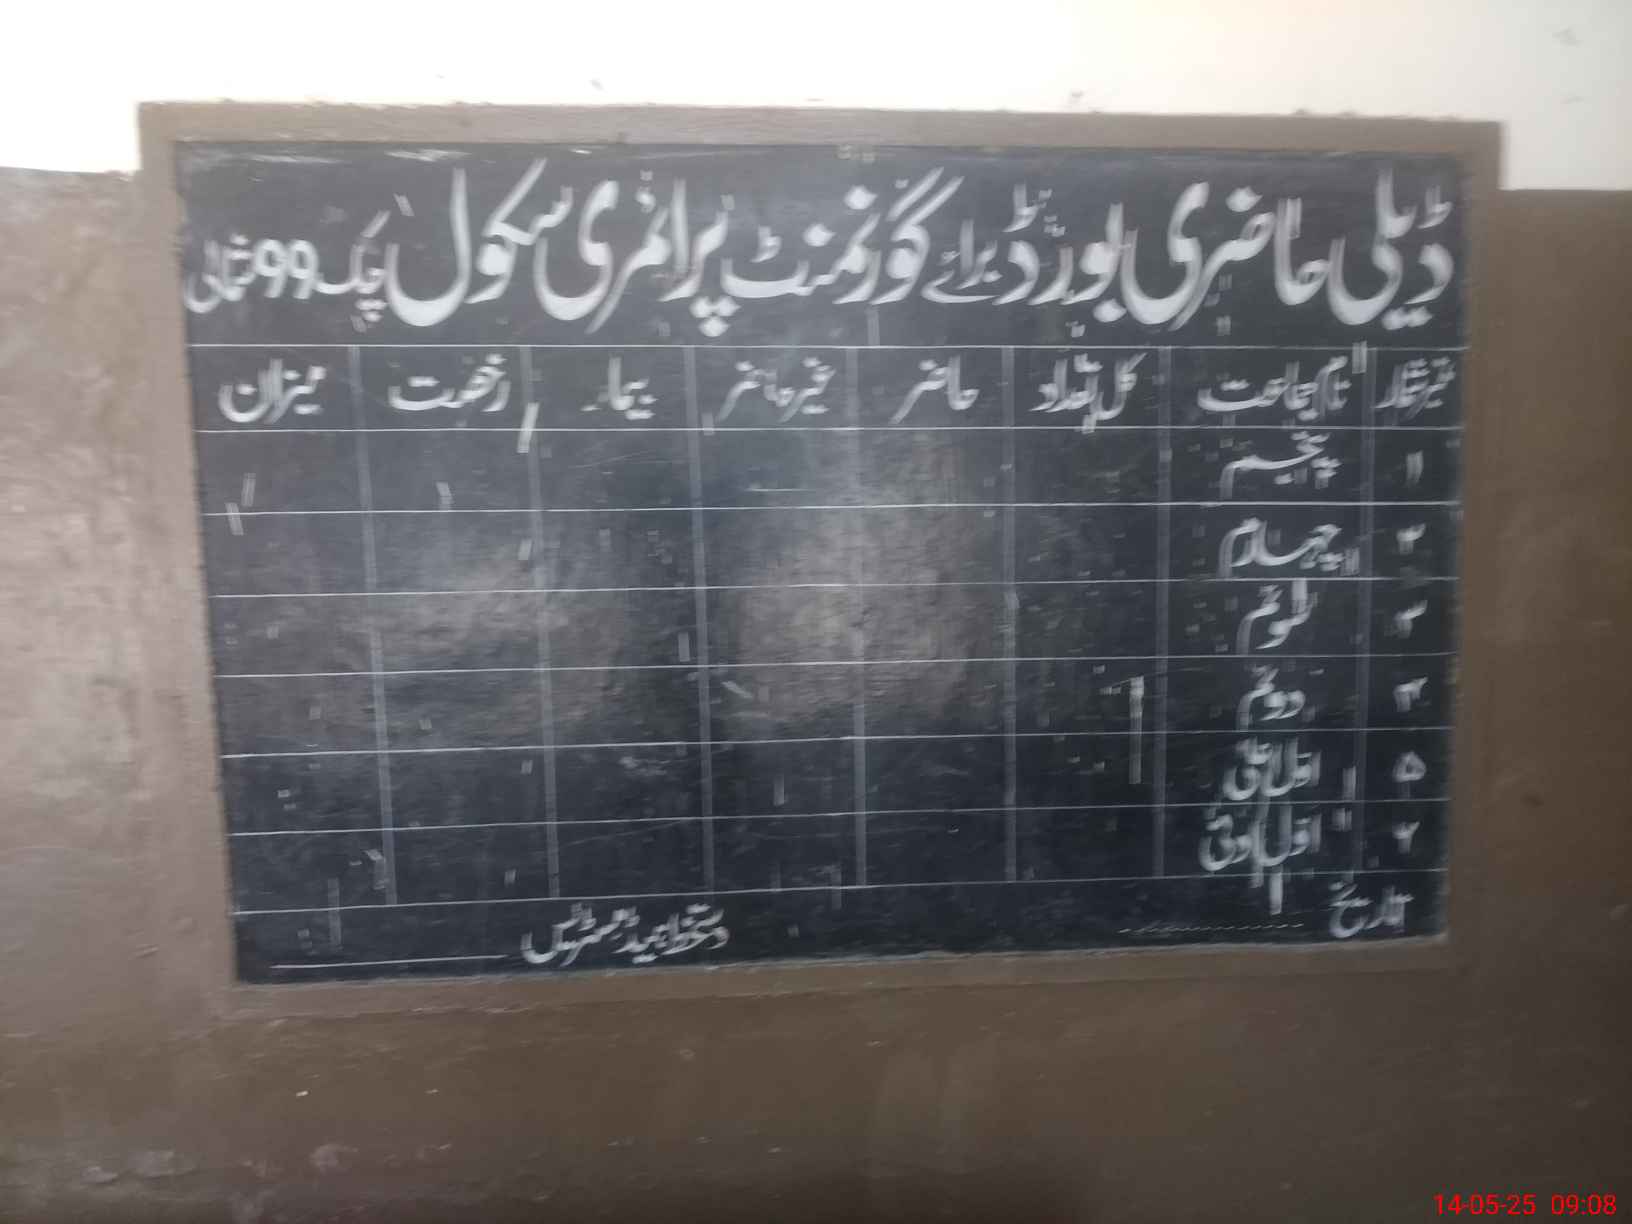 ڈیلی حاضری بورڈ برائے گورنمنٹ پرائمری سکول چک 99 شمالی
نمبر شمار نام جماعت کل تعداد حاضر غیر حاضر بیمار رخصت میزان
۱ پنجم
۲ چہارم
۳ سوئم
۴ دوئم
۵ اول اعلی
۶ اول ادنی
تاریخ دستخط ہیڈ مسٹریس
14-05-25 09:08